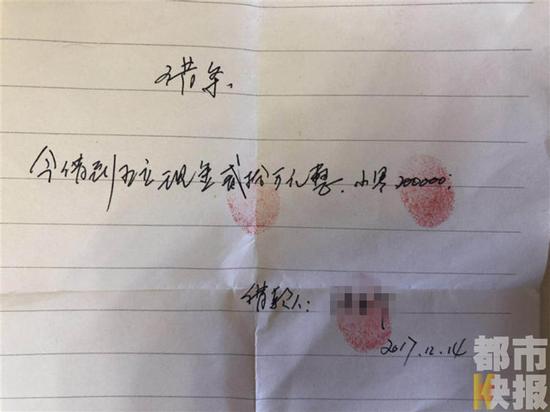 借条
今借到王立现金贰拾万元整.小写200000:
借款人:
2017.12.14
都市
快报